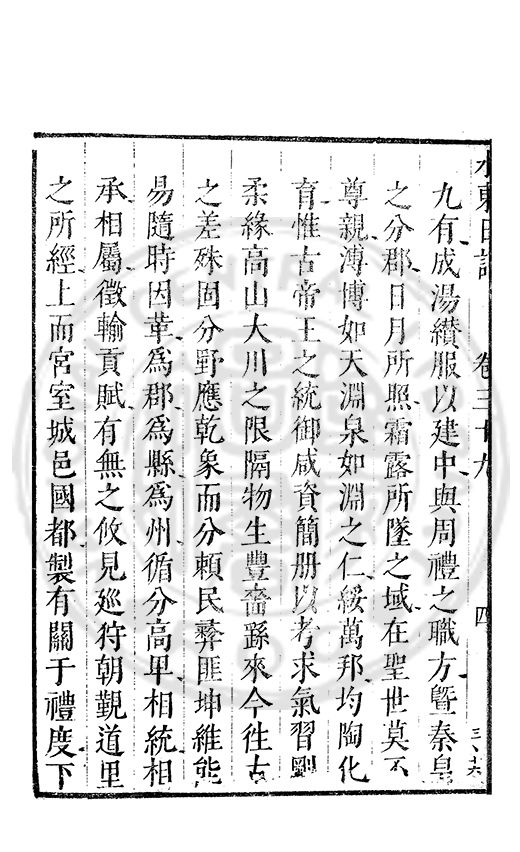 水東日記 卷三十九 四
九有成湯纘服以建中與周禮之職方曁秦皇
之分郡日月所照霜露所墜之域在聖世莫不
尊親溥博如天淵泉如淵之仁綏萬邦均陶化
育惟古帝王之統御咸資簡册以考求氣習剛
柔緣高山大川之限隔物生豐嗇繇來今徃古
之差殊固分野應乾象而分頼民彞匪坤維能
易隨時因革爲郡爲縣爲州循分高卑相統相
承相屬徵輸貢賦有無之攸見廵狩朝覲道里
之所經上而宮室城邑國都製有關于禮度下